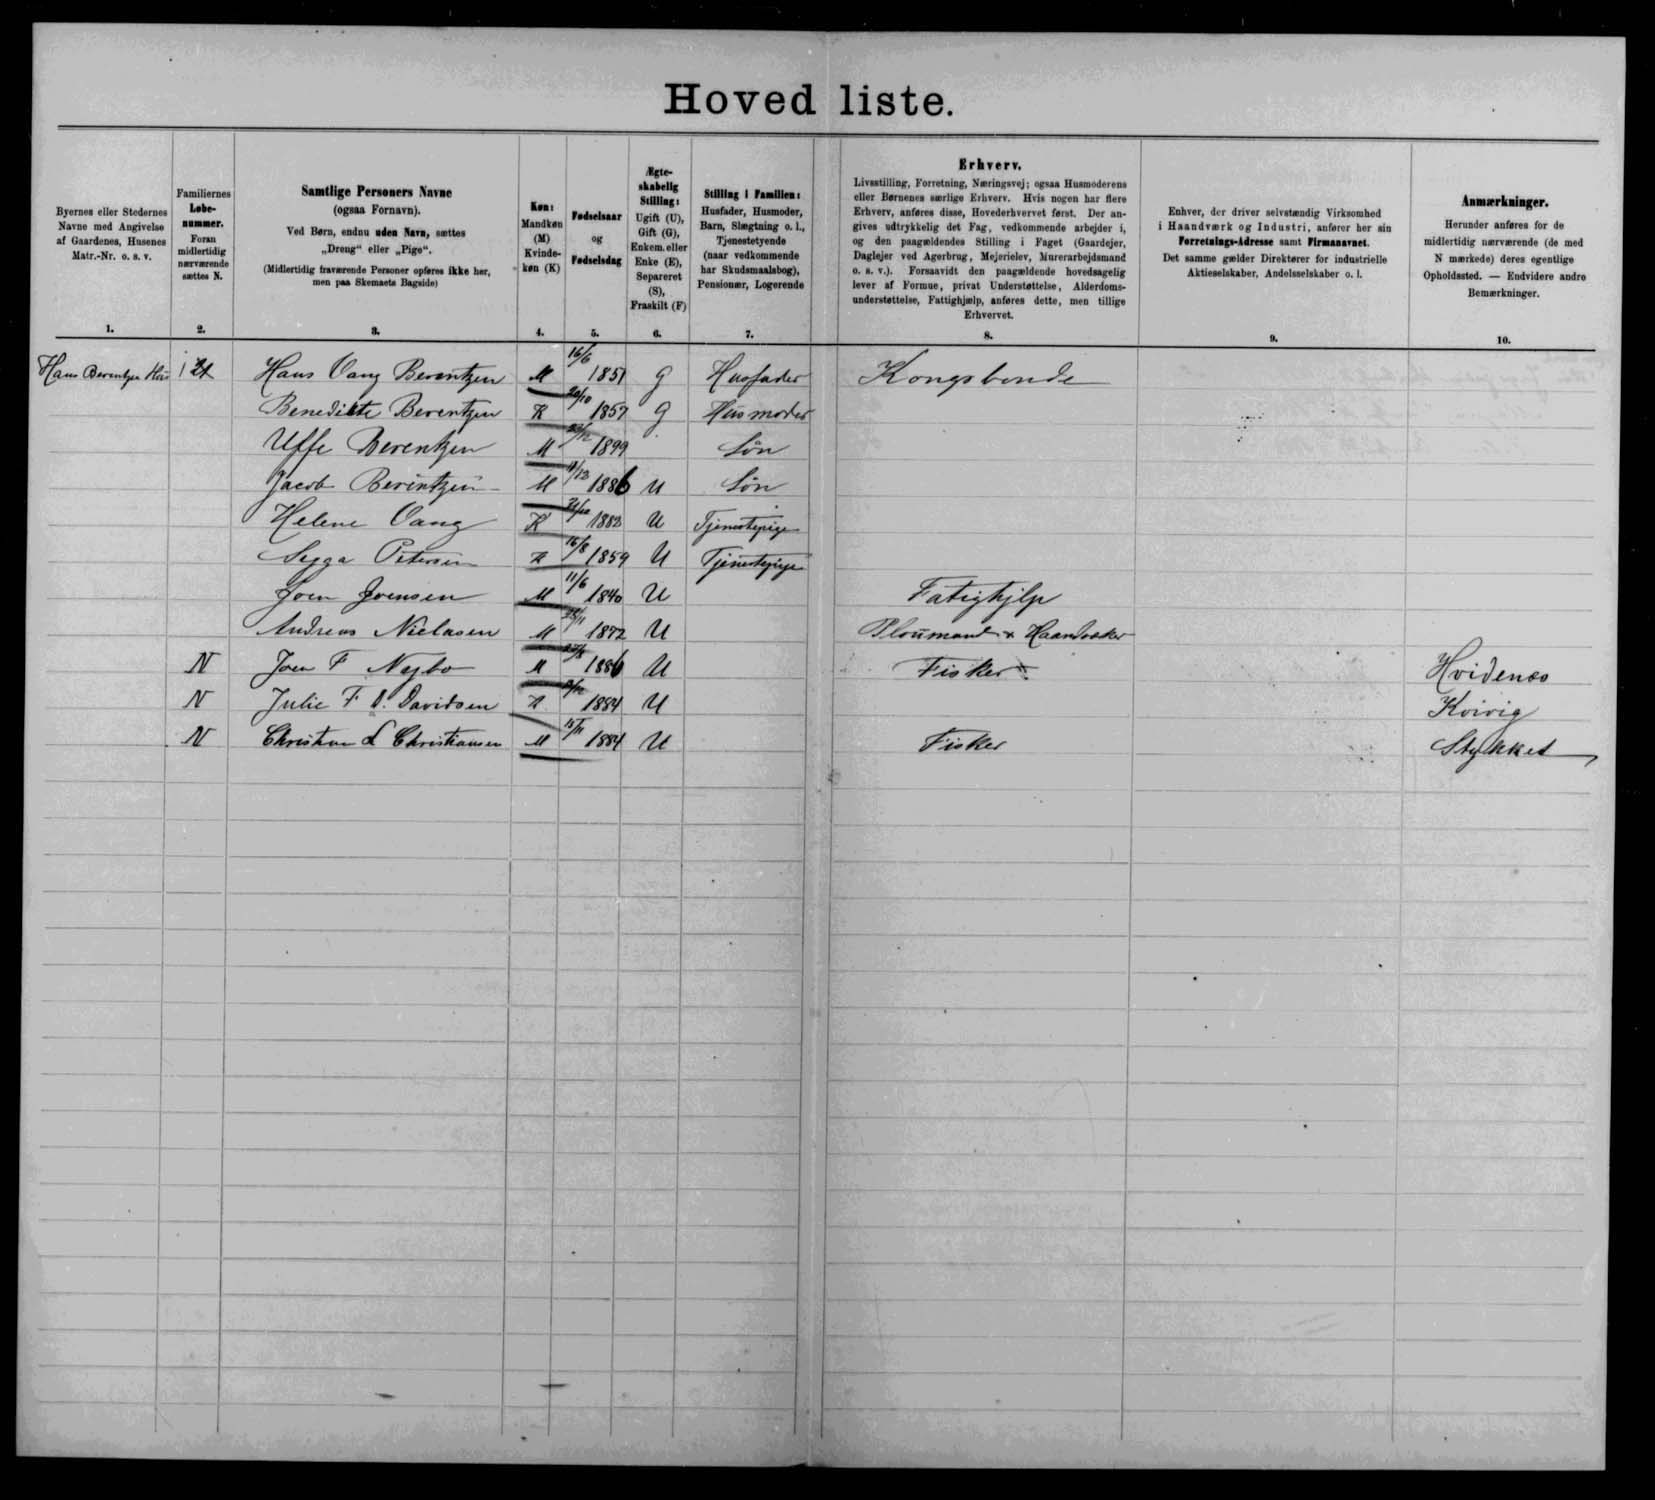 Hoved liste.
Byernes eller Stedernes
Navne med Angivelse
af Gaardenes, Husenes
Matr.-Nr. o. s. v.
1.
Familiernes
Løbe-
nummer.
Foran
midlertidig
nærværende
sættes N.
2.
Samtlige Personers Navne
(ogsaa Fornavn).
Ved Børn, endnu uden Navn, sættes
„Dreng“ eller „Pige“.
(Midlertidig fraværende Personer opføres ikke her,
men paa Skemaets Bagside)
3.
Køn:
Mandkøn
(M)
Kvinde-
køn (K)
4.
Fødselsaar
og
Fødselsdag
5.
Ægte-
skabelig
Stilling:
Ugift (U),
Gift (G),
Enkem. eller
Enke (E),
Separeret
(S),
Fraskilt (F)
6.
Stilling i Familien:
Husfader, Husmoder,
Barn, Slægtning o. l.,
Tjenestetyende
(naar vedkommende
har Skudsmaalsbog),
Pensionær, Logerende
7.
Erhverv.
Livsstilling, Forretning, Næringsvej; ogsaa Husmoderens
eller Børnenes særlige Erhverv. Hvis nogen har flere
Erhverv, anføres disse, Hovederhvervet først. Der an-
gives udtrykkelig det Fag, vedkommende arbejder i,
og den paagældendes Stilling i Faget (Gaardejer,
Daglejer ved Agerbrug, Mejerielev, Murerarbejdsmand
o. s. v.). Forsaavidt den paagældende hovedsagelig
lever af Formue, privat Understøttelse, Alderdoms-
understøttelse, Fattighjælp, anføres dette, men tillige
Erhvervet.
8.
Enhver, der driver selvstændig Virksomhed
i Haandværk og Industri, anfører her sin
Forretnings-Adresse samt Firmanavnet.
Det samme gælder Direktører for industrielle
Aktieselskaber, Andelsselskaber o. l.
9.
Anmærkninger.
Herunder anføres for de
midlertidig nærværende (de med
N mærkede) deres egentlige
Opholdssted. — Endvidere andre
Bemærkninger.
10.
Hans Berentzen Hus Hans Vang Berentzen M 16/6 1851 G Husfader Kongsbonde
Benedikte Berentzen K 20/10 1857 G Husmoder
Uffe Berentzen M 1899 Sön
Jacob Berentzen M 1886 U Sön
Helene Vang K 1882 U Tjenestepige
Segga Petersen K 16/8 1859 U Tjenestepige
Joen Joensen M 11/6 1840 U Fatighjlp
Andreas Niclasen M 1872 U Haandväker
N Joen F Nejbo M 1886 U Fisker Hvidenes
N Julie F D. Davidsen K 1884 U Kvivig
N Christian L Christiansen M 15/11 1884 U Fisker Stykket